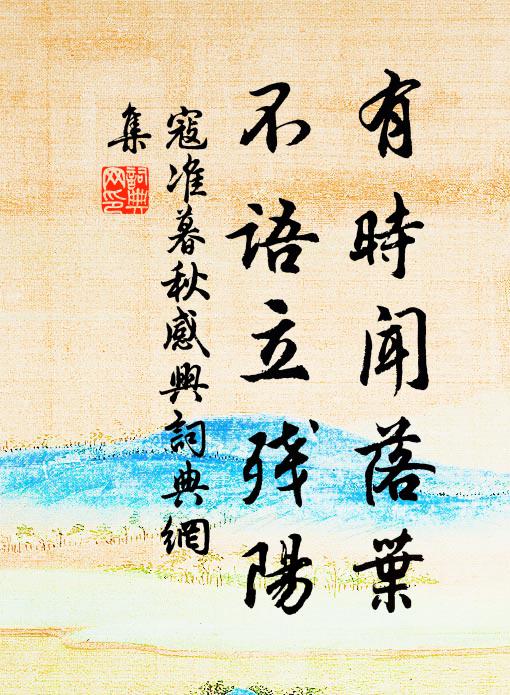 有時聞落葉
不語立残陽
寇准暮秋感興詞典網
集
詞典
网印